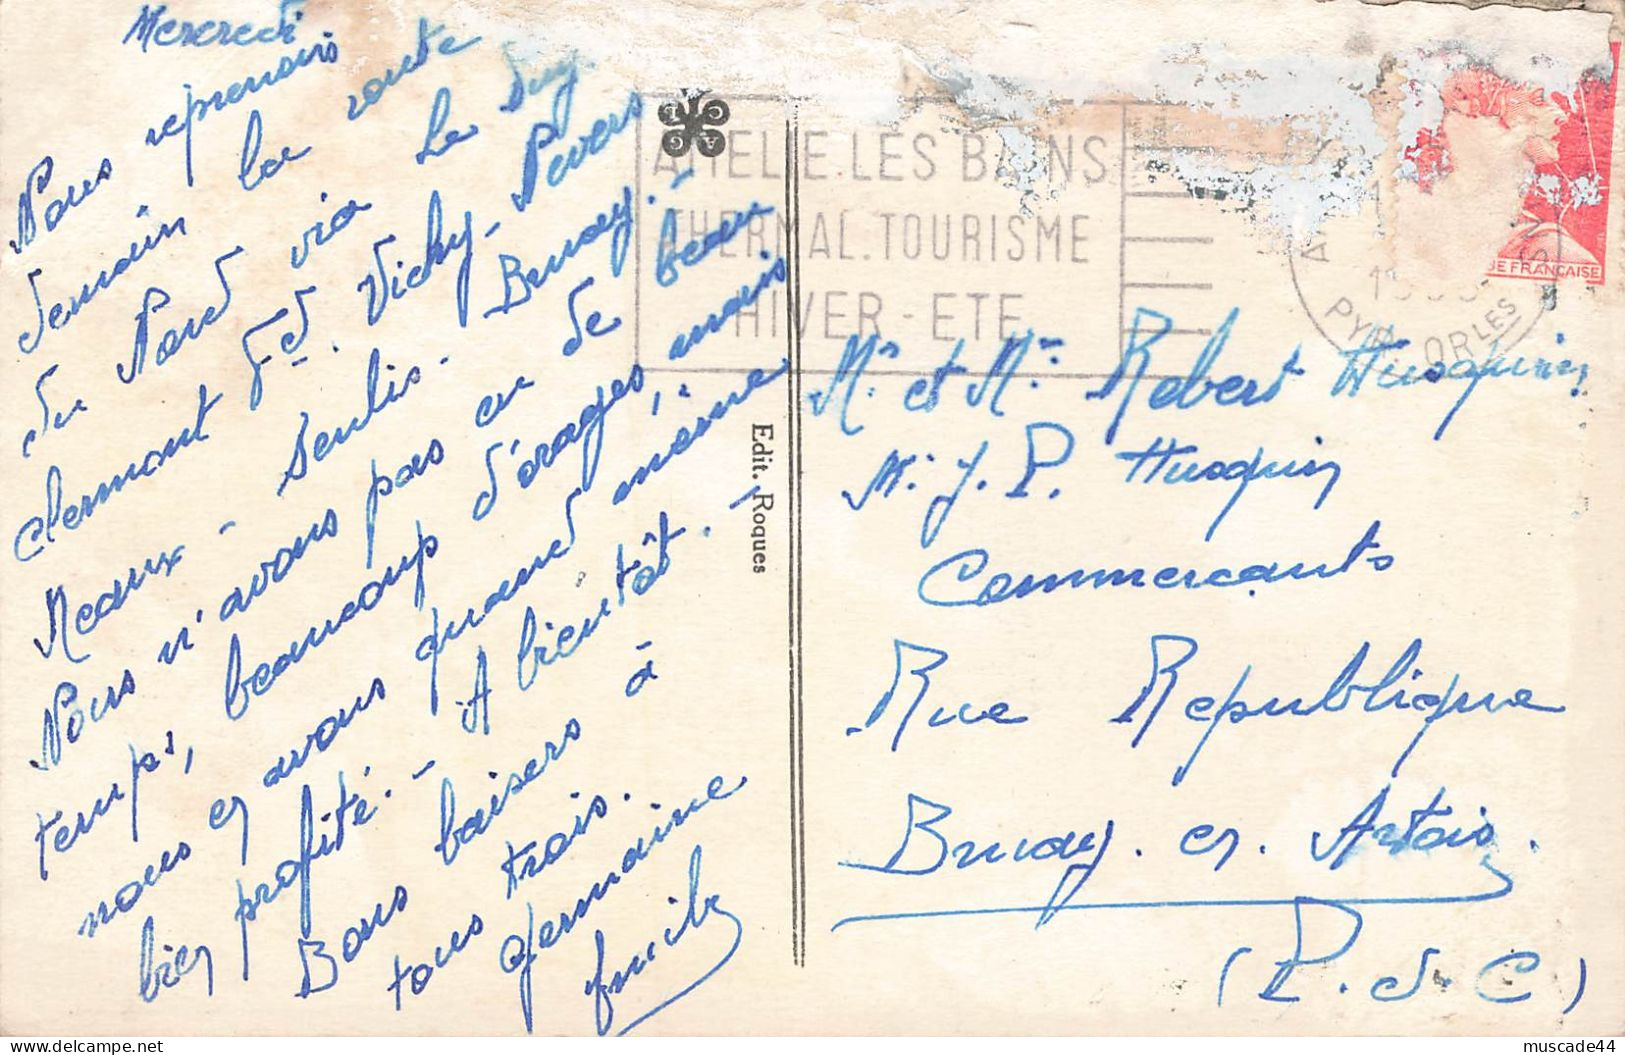 Mercredi
Nous reprenons
demain la route
du Nord via Le Puy
Clermont F-d. Vichy - Nevers
Meaux - Senlis - Bruay. -
Nous n'avons pas eu de beau
temps, beaucoup d'orages, mais
nous en avons quand même
bien profité. - A bientôt. -
Bons baisers à
tous trois.
Germaine
Emile
CAGT
Edit. Roques
AMELIE.LES BAINS
THERMAL.TOURISME
HIVER - ETE
PYR. ORLES
DE FRANCAISE
Mr. et Me Robert Husquin
M. J. P. Husquin
Commercants
Rue Republique
Bruay. en. Artois.
(P. d. C)
delcampe.net
muscade44